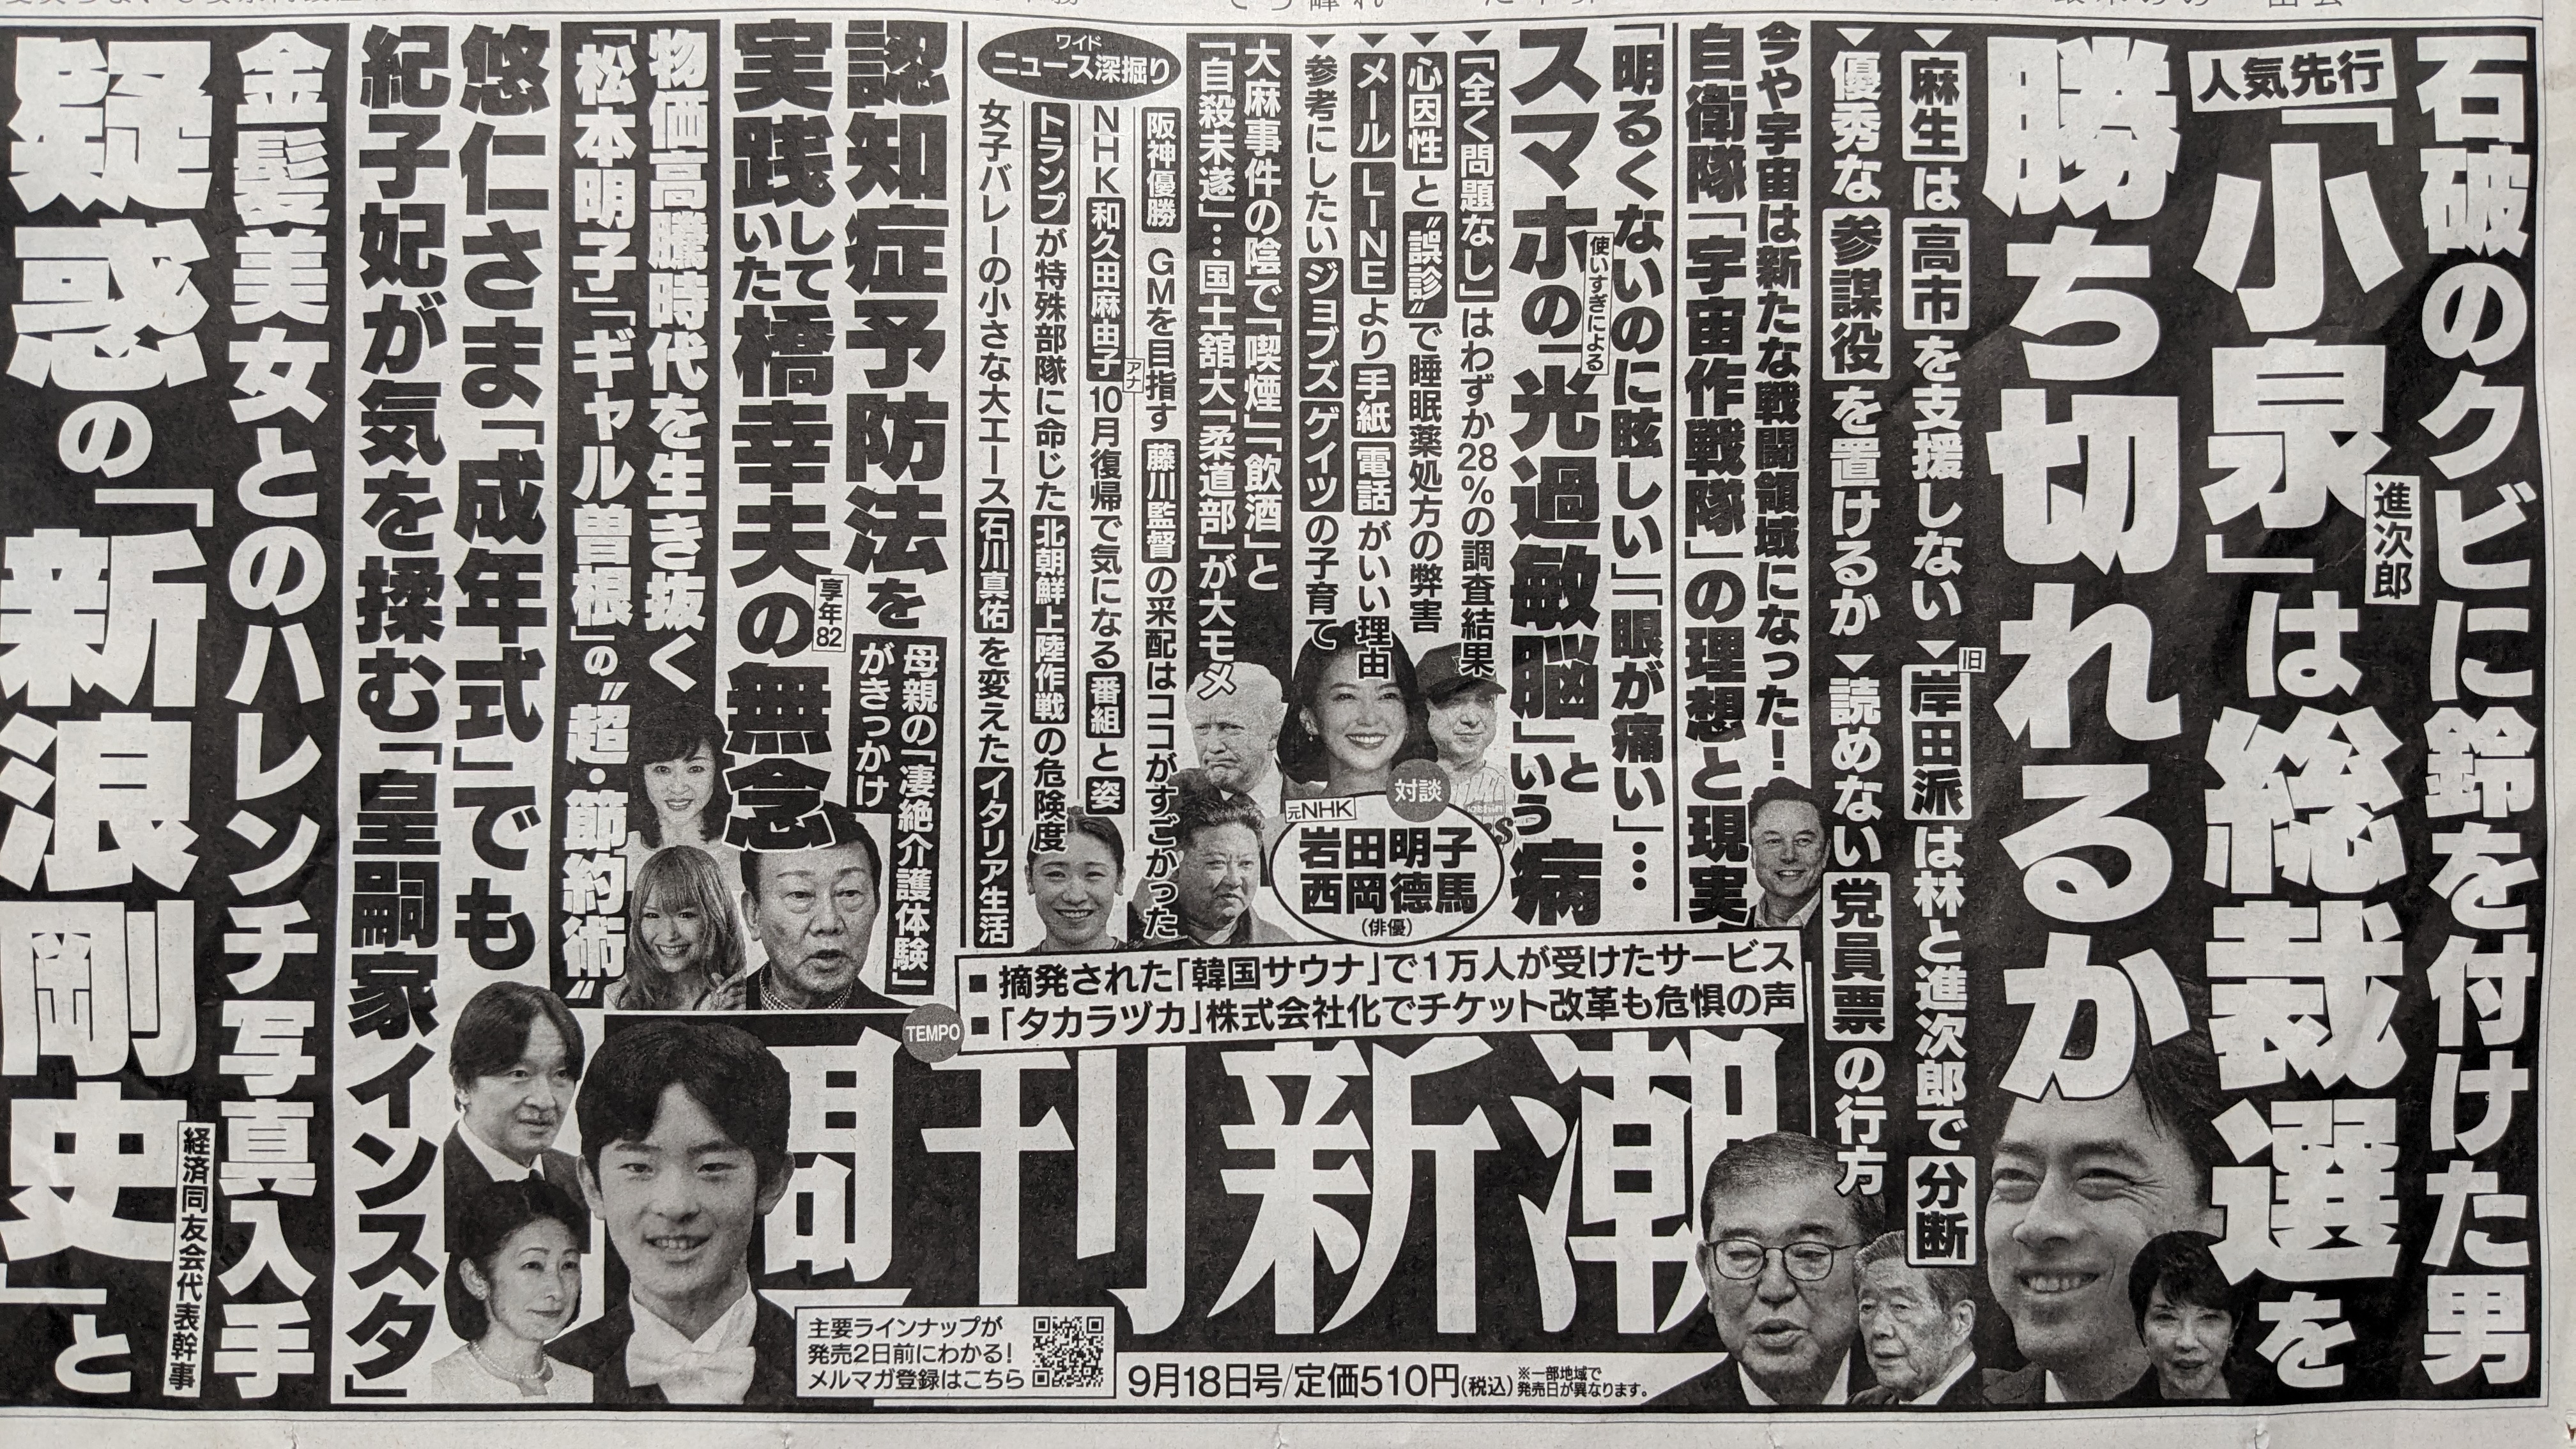 石破のクビに鈴を付けた男
人気先行
「小泉」は総裁選を
進次郎
勝ち切れるか
▼麻生は高市を支援しない
▼旧岸田派は林と進次郎で分断
▼優秀な参謀役を置けるか
▼読めない党員票の行方
今や宇宙は新たな戦闘領域になった!
自衛隊「宇宙作戦隊」の理想と現実
「明るくないのに眩しい」「眼が痛い」…
使いすぎによる
スマホの「光過敏脳」という病
▼「全く問題なし」はわずか28%の調査結果
▼心因性と〝誤診〟で睡眠薬処方の弊害
▼メールLINEより手紙電話がいい理由
▼参考にしたいジョブズゲイツの子育て
大麻事件の陰で「喫煙」「飲酒」と
「自殺未遂」…国士舘大「柔道部」が大モメ
ワイド
ニュース深掘り
阪神優勝 GMを目指す藤川監督の采配はココがすごかった
NHK和久田麻由子アナ10月復帰で気になる番組と姿
トランプが特殊部隊に命じた北朝鮮上陸作戦の危険度
女子バレーの小さな大エース石川真佑を変えたイタリア生活
対談
元NHK
岩田明子
西岡德馬
(俳優)
認知症予防法を
実践していた橋幸夫の無念
享年82
母親の「凄絶介護体験」
がきっかけ
物価高騰時代を生き抜く
「松本明子」「ギャル曽根」の〝超・節約術〟
悠仁さま「成年式」でも
紀子妃が気を揉む「皇嗣家インスタ」
金髪美女とのハレンチ写真入手
疑惑の「新浪剛史」と
経済同友会代表幹事
TEMPO
■摘発された「韓国サウナ」で1万人が受けたサービス
■「タカラヅカ」株式会社化でチケット改革も危惧の声
週刊新潮
主要ラインナップが
発売2日前にわかる!
メルマガ登録はこちら
9月18日号/定価510円(税込)
※一部地域で
発売日が異なります。